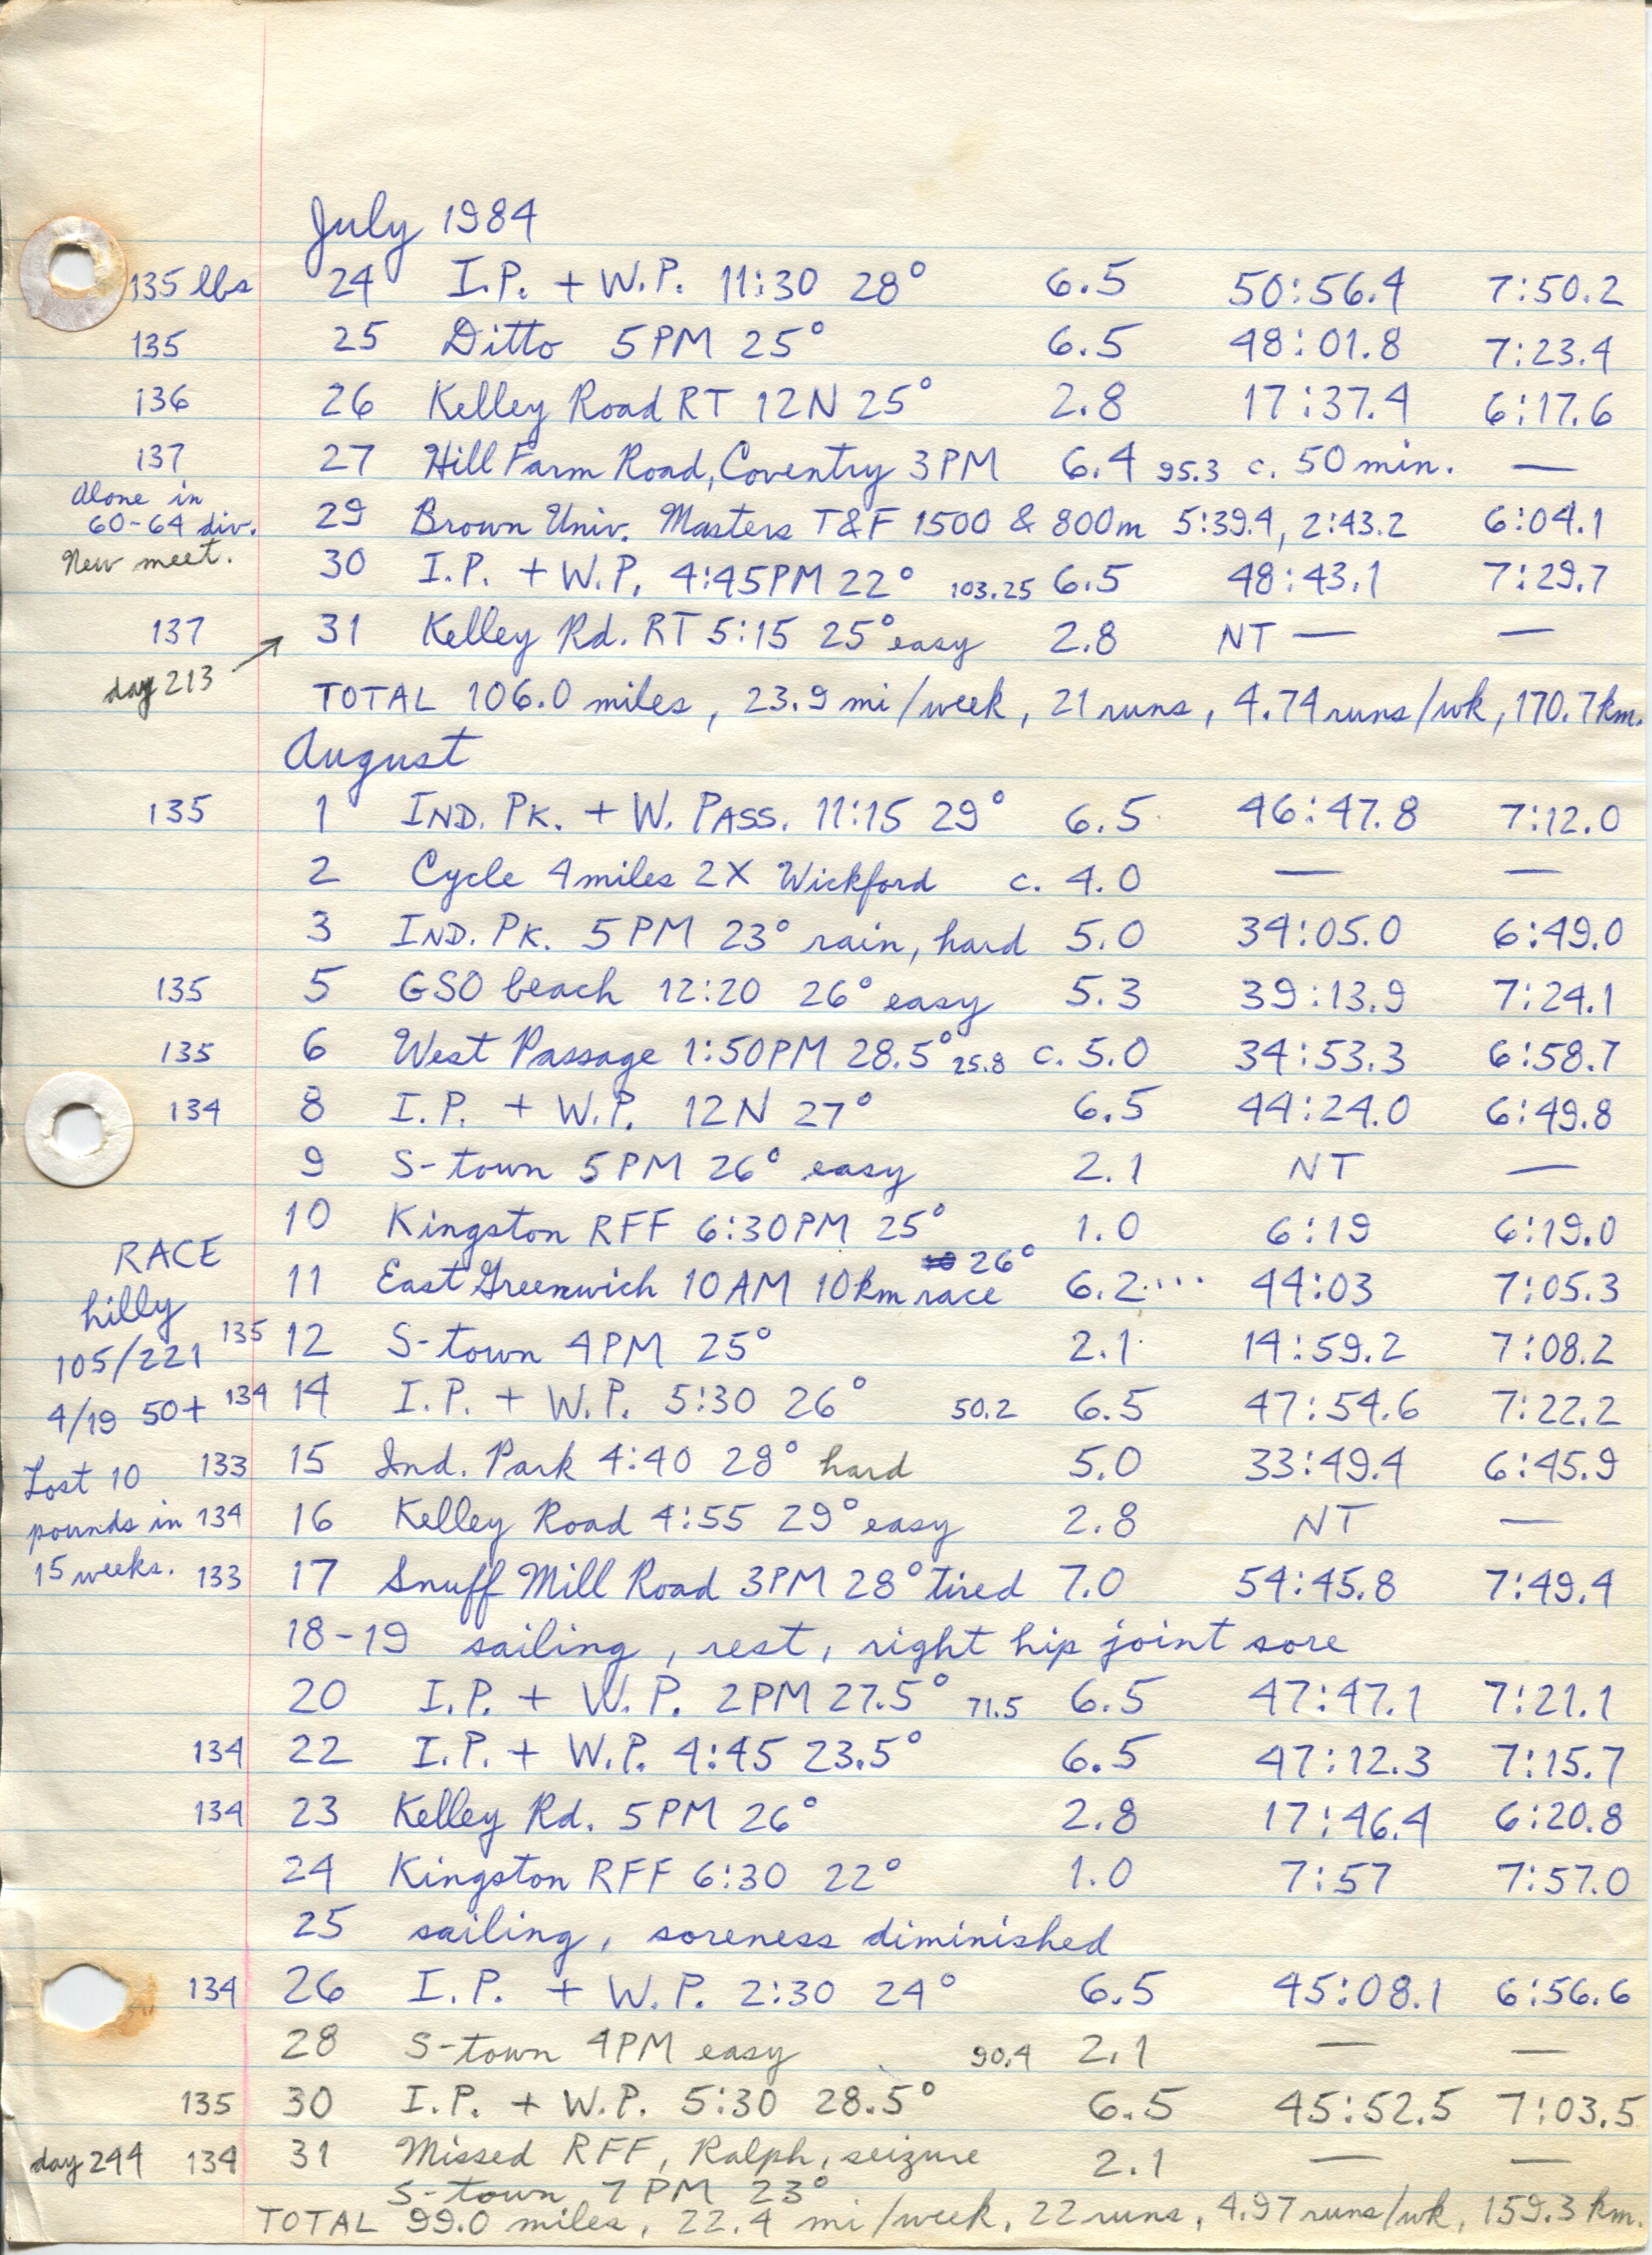 July 1984
135 lbs 24 I.P. + W.P. 11:30 28° 6.5 50:56.4 7:50.2
135 25 Ditto 5PM 25° 6.5 48:01.8 7:23.4
136 26 Kelley Road RT 12N 25° 2.8 17:37.4 6:17.6
137 27 Hill Farm Road, Coventry 3PM 6.4 95.3 c. 50 min. —
Alone in
60-64 div. 29 Brown Univ. Masters T&F 1500 & 800m 5:39.4, 2:43.2 6:04.1
New meet. 30 I.P. + W.P. 4:45PM 22° 103.25 6.5 48:43.1 7:29.7
137 31 Kelley Rd. RT 5:15 25° easy 2.8 NT — —
day 213 TOTAL 106.0 miles, 23.9 mi/week, 21 runs, 4.74 runs/wk, 170.7 km.
August
135 1 IND. PK. + W. PASS. 11:15 29° 6.5 46:47.8 7:12.0
2 Cycle 4 miles 2X Wickford c. 4.0 — —
3 IND. PK. 5PM 23° rain, hard 5.0 34:05.0 6:49.0
135 5 GSO beach 12:20 26° easy 5.3 39:13.9 7:24.1
135 6 West Passage 1:50PM 28.5° 25.8 c. 5.0 34:53.3 6:58.7
134 8 I.P. + W.P. 12N 27° 6.5 44:24.0 6:49.8
9 S-town 5PM 26° easy 2.1 NT —
10 Kingston RFF 6:30PM 25° 1.0 6:19 6:19.0
RACE 26°
11 East Greenwich 10AM 10km race 6.2.... 44:03 7:05.3
hilly
135 12 S-town 4PM 25° 2.1 14:59.2 7:08.2
105/221
4/19 50+ 134 14 I.P. + W.P. 5:30 26° 50.2 6.5 47:54.6 7:22.2
Lost 10 133 15 Ind. Park 4:40 28° hard 5.0 33:49.4 6:45.9
pounds in 134 16 Kelley Road 4:55 29° easy 2.8 NT —
15 weeks. 133 17 Snuff Mill Road 3PM 28° tired 7.0 54:45.8 7:49.4
18-19 sailing, rest, right hip joint sore
20 I.P. + W.P. 2PM 27.5° 71.5 6.5 47:47.1 7:21.1
134 22 I.P. + W.P. 4:45 23.5° 6.5 47:12.3 7:15.7
134 23 Kelley Rd. 5PM 26° 2.8 17:46.4 6:20.8
24 Kingston RFF 6:30 22° 1.0 7:57 7:57.0
25 sailing, soreness diminished
134 26 I.P. + W.P. 2:30 24° 6.5 45:08.1 6:56.6
28 S-town 4PM easy 90.4 2.1 — —
135 30 I.P. + W.P. 5:30 28.5° 6.5 45:52.5 7:03.5
day 244 134 31 Missed RFF, Ralph, seizure 2.1 — —
S-town 7 PM 23°
TOTAL 99.0 miles, 22.4 mi/week, 22 runs, 4.97 runs/wk, 159.3 km.